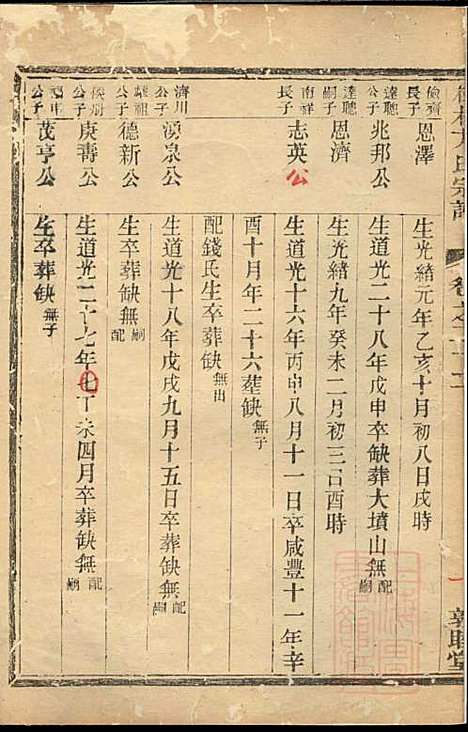 宗譜
敦睦堂
儉齊長子 恩澤 生光緒元年乙亥十月初八日戌時
達聰公子 兆邦公 生道光二十八年戊申卒缺葬大墳山無配嗣
達聰嗣子 恩濟 生光緒九年癸未二月初三日酉時
南祥長子 志英公 生道光十六年丙申八月十一日卒咸豐十一年辛
酉十月年二十六葬缺無子
配錢氏生卒葬缺無出
濟川公子 湧泉公 生道光十八年戊戌九月十五日卒葬缺無配嗣
公子 德新公 生卒葬缺無配嗣
公子 庚壽公 生道光二十七年丁未四月卒葬缺無配嗣
公子 茂亨公 生卒葬缺無子